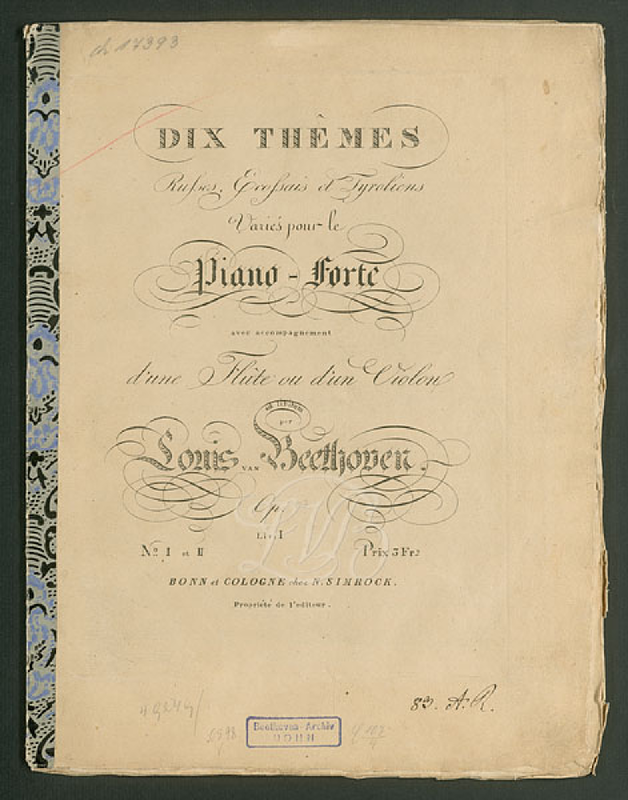 ch 17393
DIX THÈMES
Russes, Ecossais et Tyroliens
Variés pour le
Piano - Forte
avec accompagnement
d'une Flûte ou d'un Violon
par
Louis VAN Beethoven.
Op.
Liv. I
No. I et II Prix 3 Frs
BONN et COLOGNE chez N. SIMROCK.
Propriété de l'editeur.
83. A. R.
Beethoven-Archiv
BONN